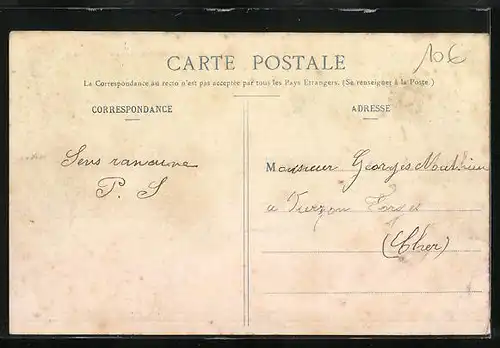 10€
CARTE POSTALE
La Correspondance au recto n'est pas acceptée par tous les Pays Etrangers. (Se renseigner à la Poste.)
CORRESPONDANCE
ADRESSE
Sens rancune
P. S
Monsieur Georges Mathieu
a Vierzon Forges
(Cher)